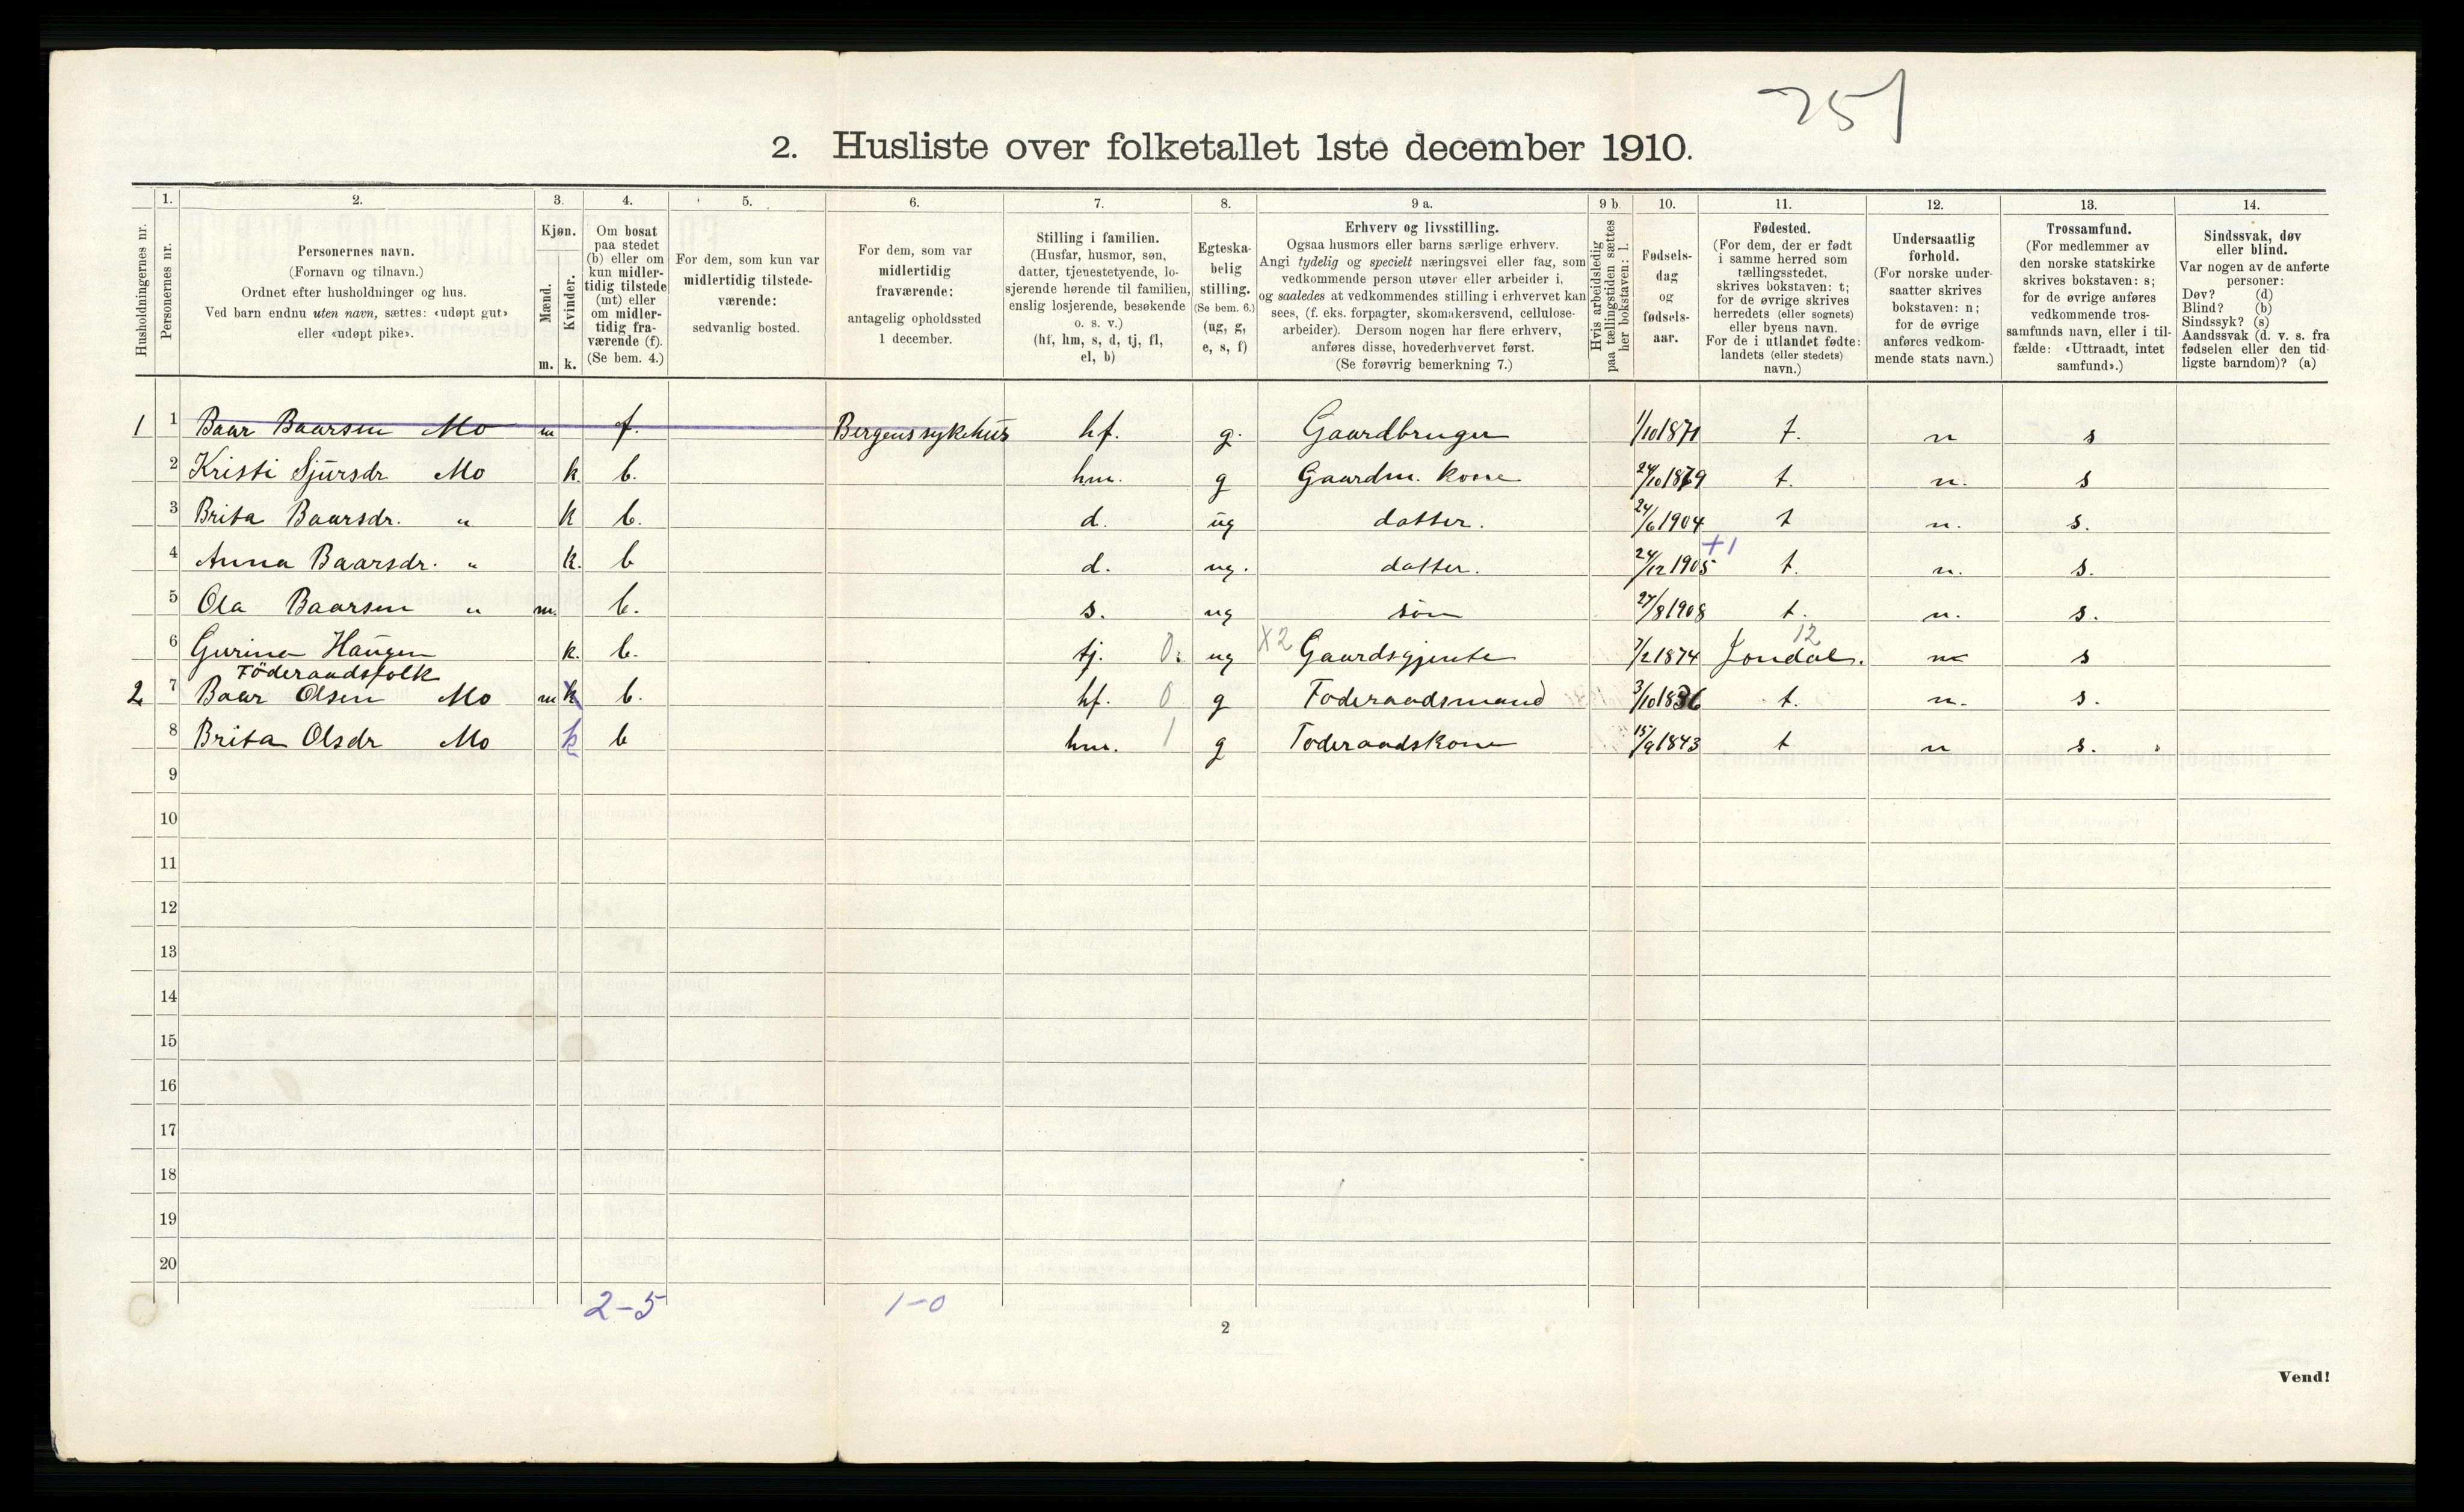 251
2. Husliste over folketallet 1ste december 1910.
1. 2. 3. 4. 5. 6. 7. 8. 9 a. 9 b. 10. 11. 12. 13. 14.
Husholdningernes nr.
Personernes nr.
Personernes navn.
(Fornavn og tilnavn.)
Ordnet efter husholdninger og hus.
Ved barn endnu uten navn, sættes: «udøpt gut»
eller «udøpt pike».
Kjøn.
Mænd.
Kvinder.
m. k.
Om bosat
paa stedet
(b) eller om
kun midler-
tidig tilstede
(mt) eller
om midler-
tidig fra-
værende (f).
(Se bem. 4.)
For dem, som kun var
midlertidig tilstede-
værende:
sedvanlig bosted.
For dem, som var
midlertidig
fraværende:
antagelig opholdssted
1 december.
Stilling i familien.
(Husfar, husmor, søn,
datter, tjenestetyende, lo-
sjerende hørende til familien,
enslig losjerende, besøkende
o. s. v.)
(hf, hm, s, d, tj, fl,
el, b)
Egteska-
belig
stilling.
(Se bem. 6.)
(ug, g,
e, s, f)
Erhverv og livsstilling.
Ogsaa husmors eller barns særlige erhverv.
Angi tydelig og specielt næringsvei eller fag, som
vedkommende person utøver eller arbeider i,
og saaledes at vedkommendes stilling i erhvervet kan
sees, (f. eks. forpagter, skomakersvend, cellulose-
arbeider). Dersom nogen har flere erhverv,
anføres disse, hovederhvervet først.
(Se forøvrig bemerkning 7.)
Hvis arbeidsledig
paa tællingstiden sættes
her bokstaven: l.
Fødsels-
dag
og
fødsels-
aar.
Fødested.
(For dem, der er født
i samme herred som
tællingsstedet,
skrives bokstaven: t;
for de øvrige skrives
herredets (eller sognets)
eller byens navn.
For de i utlandet fødte:
landets (eller stedets)
navn.)
Undersaatlig
forhold.
(For norske under-
saatter skrives
bokstaven: n;
for de øvrige
anføres vedkom-
mende stats navn.)
Trossamfund.
(For medlemmer av
den norske statskirke
skrives bokstaven: s;
for de øvrige anføres
vedkommende tros-
samfunds navn, eller i til-
fælde: «Uttraadt, intet
samfund».)
Sindssvak, døv
eller blind.
Var nogen av de anførte
personer:
Døv? (d)
Blind? (b)
Sindssyk? (s)
Aandssvak (d. v. s. fra
fødselen eller den tid-
ligste barndom)? (a)
1 1 Baar Baarsen Mo m f. Bergens sykehus hf. g. Gaardbruger 1/10 1871 t. n s
2 Kristi Sjursdr Mo k. b. hm. g Gaardm. kone 24/10 1879 t. n. s
3 Brita Baarsdr. " k b. d. ug datter. 24/6 1904 t n. s.
+1
4 Anna Baarsdr. " k. b d. ug. datter. 24/12 1905 t. n. s.
5 Ola Baarsen " m. b. s. ug søn 27/8 1908 t. n. s.
6 Gurina Haugen k. b. tj. 0. ug X2 Gaardsgjente 7/2 1874 Jondal. 12 n s
Föderaadsfolk
2 7 Baar Olsen Mo m k b. hf. 0 g Foderaadsmand 3/10 1836 t. n. s.
8 Brita Olsdr Mo k b hm. 1 g Foderaadskone 15/9 1843 t n s.
9
10
11
12
13
14
15
16
17
18
19
20
2-5 1-0
2
Vend!